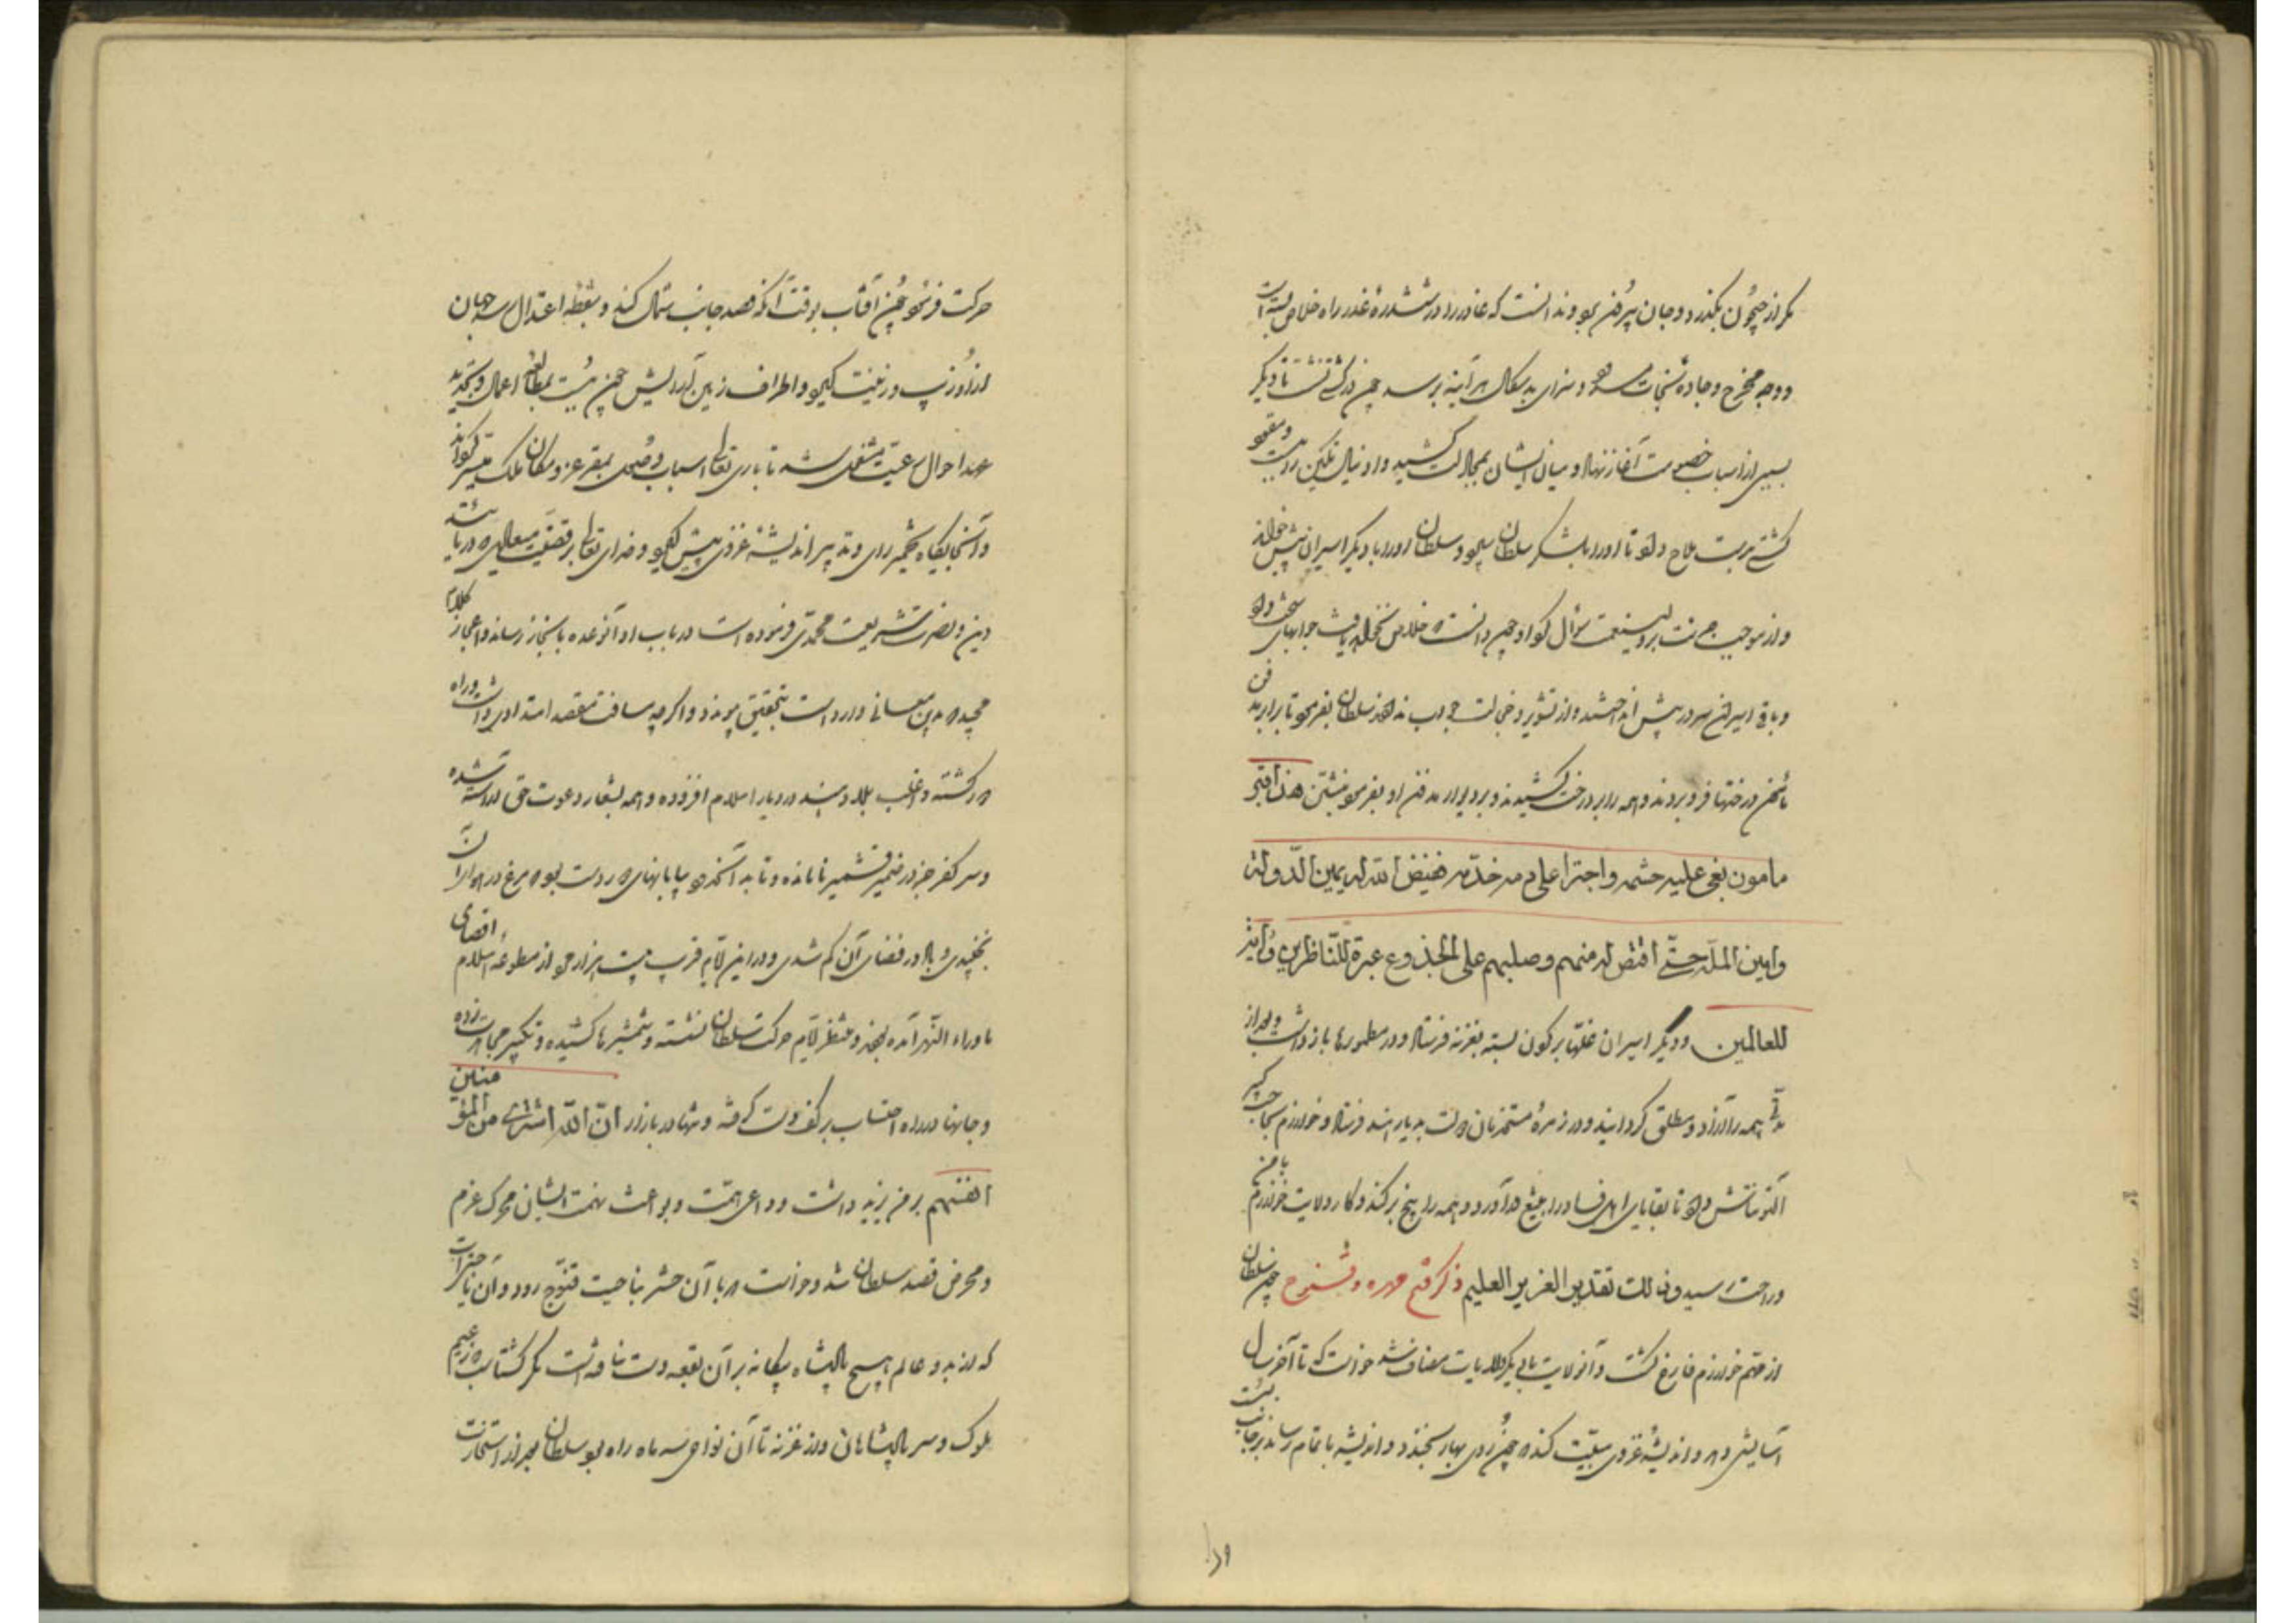 مگر از جیحون بگذرد و جان بیرون برد و ندانست که غادر را در ششدرهٔ غدر راه خلاص بسته است
و وجه مخرج و جاده نجات مسدود و سزای بد سگال هر آینه برسد چون در کشتی نشست با دیگر
بسبی از اسباب خصومت آغاز نهاد و میان ایشان بمجادلت کشید و اورا نیال تکین
کشتی بدست ملاح داد تا اورا بلشکر سلطان سپرد و سلطان اورا با دیگر اسیران پیش خواند
و از موجب جرأت بر ولی نعمت سؤال کرد او چون دانست که خلاص نخواهد یافت جوابهای سخت داد
و باقی اسیران سر در پیش انداختند و از تشویر و خجالت جواب ندادند سلطان بفرمود تا برابر مدفن
مأمون درختها فرو بردند و همه را بر درخت کشیدند و بر دیوار مدفن او بفرمود نبشتن هذا قبر
مامون بغی علیه حشمه واجترا علی دمه خدمه فقیض الله له یمین الدولة
وامین الملة حتی اقتص له منهم وصلبهم علی الجذوع عبرة للناظرین وآیة
للعالمین و دیگر اسیران غلها بر گردن بسته بغزنه فرستاد و در مطمورها باز داشت و بعد از
مدتی همه را آزاد و مطلق گردانید و در زمرهٔ مستخدمان دولت بدیار هند فرستاد و خوارزم بحاجب کبیر
التونتاش داد تا بقایای اهل فساد را بتیغ در آورد و همه را بیخ بر کند و کار ولایت خوارزم با من
و راحت رسید و ذلك تقدیر العزیز العلیم ذکر فتح مهره و قنوج چون سلطان
از مهم خوارزم فارغ گشت و آن ولایت با دیگر ولایات مضاف شد خواست که تا آخر سال
آسایش دهد و اندیشهٔ غزوی مبیت کند که چون روی بهار بخندد و اندیشه باتمام رساند بر جانب بست
حرکت فرمود چون آفتاب بوقت آنکه قصد جانب شمال کند و بنقطه اعتدال رسد جهان
ازو زیب و زینت گیرد و اطراف زمین آرایش چون ببست بمطالعه اعمال و تجدید
عهد احوال رعیت مشغول شد تا باری تعالی اسباب وصول بمقر عز و مکان ملک میسر گرداند
و آنجایگاه بتخمیر رای و تدبیر اندیشه غزوی پیش گیرد و خدای تعالی بر قضیت میعادی که در باب
دین و نصرت شریعت محمدی فرموده است در باب او آن وعده بانجاز رساند و اعجاز کلام
مجید که بدین معانی وارد است بتحقیق پیوندد و اگرچه مسافت مقصد امتدادی داشت و راه
دور گشته و اغلب بلاد هند در دیار اسلام افزوده و همه بشعار دعوت حق آراسته شده
و سر کفر جز در ضمیر قشمیر نامانده و تا بدانحدود بیابانهای دور دست بود که مرغ در هوای آن
نجنبیدی و باد در فضای آن گم شدی و در این ایام قرب بیست هزار مرد از مطوعهٔ اسلام اقصای
ماوراء النهر آمده بودند و منتظر ایام حرکت سلطان نشسته و شمشیرها کشیده و تکبیر مجاهدت زده
و جانها در راه احتساب بر کف دست گرفته و شهادت را بازار ان الله اشتری من المؤمنین
انفسهم بر من یزید داشت و دواعی همت و بواعث نهمت ایشان محرک عزم
و محرض قصد سلطان شد و خواست که با آن حشر بناحیت قنوج رود و آن ناحیتی است
که از بدو عالم هیچ پادشاه بیگانه بر آن بقعه دست نیافته است مگر گشتاسب که زعیم
ملوک و سر پادشاهان و از غزنه تا آن نواحی سه ماه راه بود سلطان بعد از استخارت